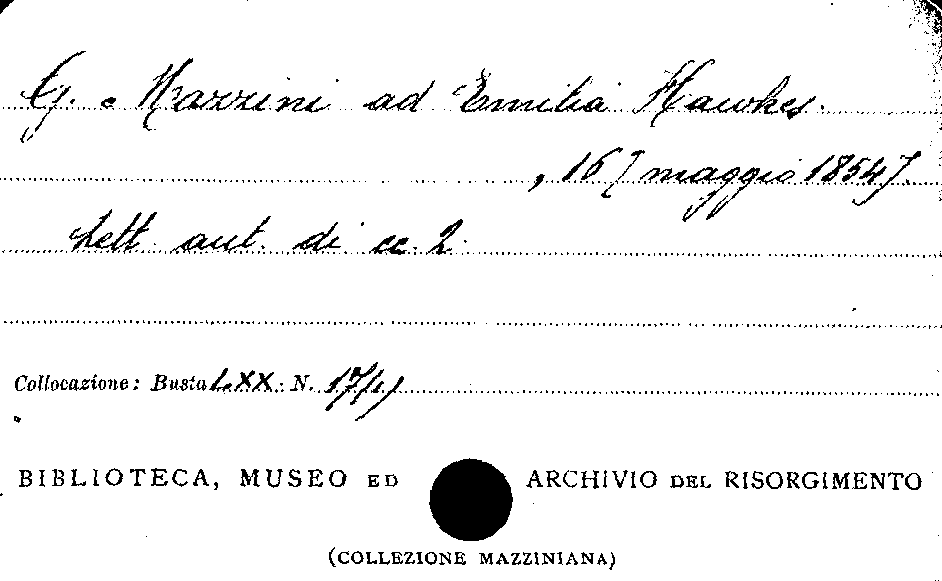 G. Mazzini ad Emilia Hawkes.
, 16 [maggio 1854].
Lett. aut. di cc. 2.
Collocazione: Busta LXX. N.
BIBLIOTECA, MUSEO ED ARCHIVIO DEL RISORGIMENTO
(COLLEZIONE MAZZINIANA)